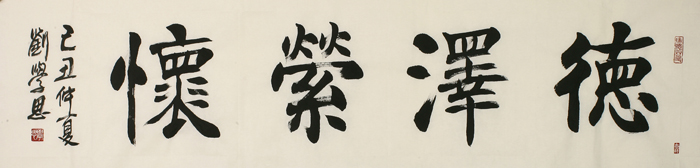 德澤縈懷
己丑仲夏
劉學思